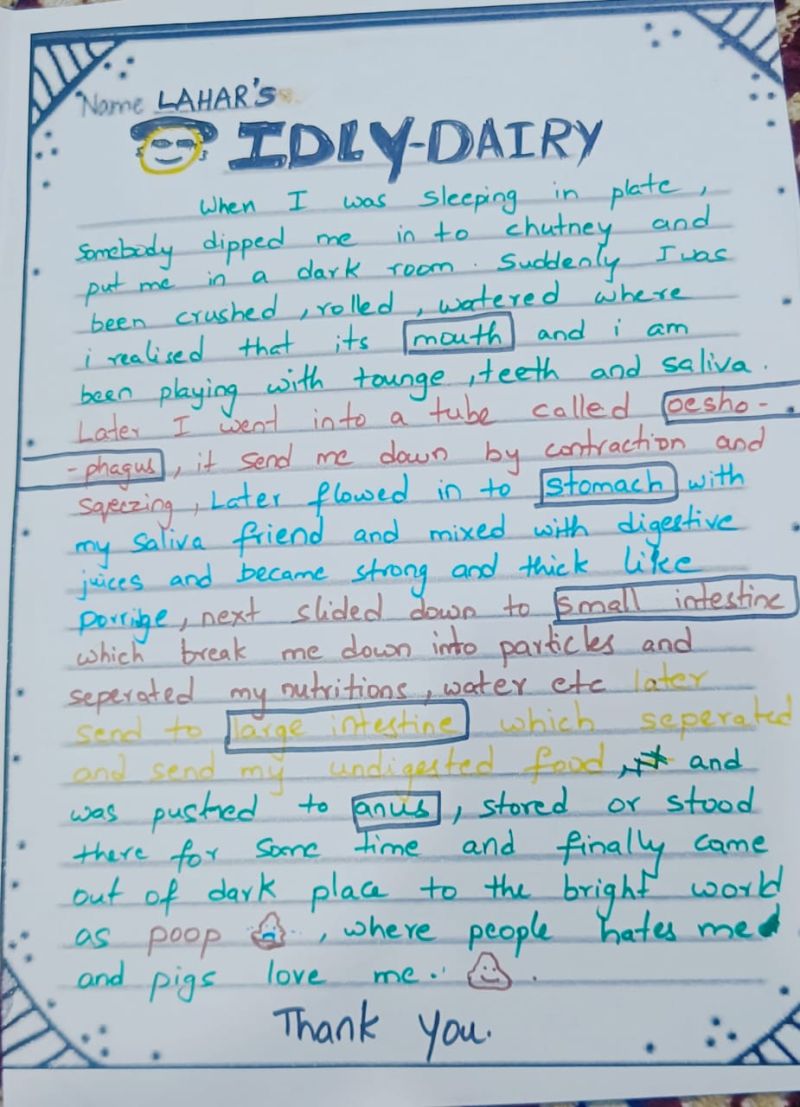 Name LAHAR'S
IDLY-DAIRY
When I was sleeping in plate,
somebody dipped me in to chutney and
put me in a dark room. Suddenly I was
been crushed, rolled, watered where
i realised that its mouth and i am
been playing with tounge, teeth and saliva.
Later I went into a tube called oesho-
-phagus, it send me down by contraction and
sqeezing, Later flowed in to stomach with
my saliva friend and mixed with digestive
juices and became strong and thick like
porridge, next slided down to small intestine
which break me down into particles and
seperated my nutritions, water etc later
send to large intestine which seperated
and send my undigested food, and
was pushed to anus, stored or stood
there for some time and finally came
out of dark place to the bright world
as poop, where people hates me
and pigs love me.
Thank you.